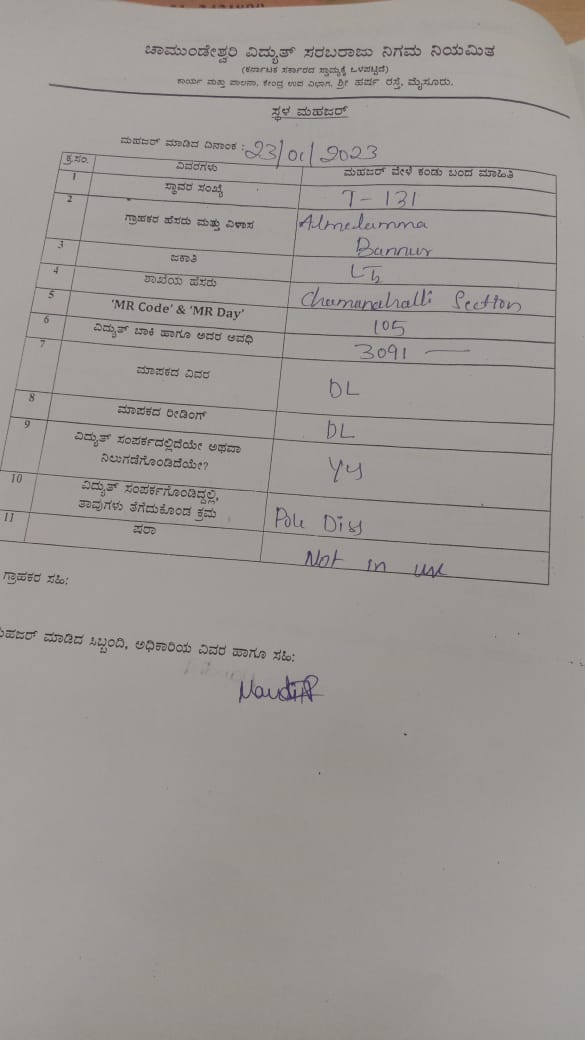 ಚಾಮುಂಡೇಶ್ವರಿ ವಿದ್ಯುತ್ ಸರಬರಾಜು ನಿಗಮ ನಿಯಮಿತ
(ಕರ್ನಾಟಕ ಸರ್ಕಾರದ ಸ್ವಾಮ್ಯಕ್ಕೆ ಒಳಪಟ್ಟಿದೆ)
ಕಾರ್ಯ ಮತ್ತು ಪಾಲನಾ, ಕೇಂದ್ರ ಉಪ ವಿಭಾಗ, ಶ್ರೀ ಹರ್ಷ ರಸ್ತೆ, ಮೈಸೂರು.
ಸ್ಥಳ ಮಹಜರ್
ಮಹಜರ್ ಮಾಡಿದ ದಿನಾಂಕ : 23/01/2023
ಕ್ರ.ಸಂ. ವಿವರಗಳು ಮಹಜರ್ ವೇಳೆ ಕಂಡು ಬಂದ ಮಾಹಿತಿ
1 ಸ್ಥಾವರ ಸಂಖ್ಯೆ T - 131
2 ಗ್ರಾಹಕರ ಹೆಸರು ಮತ್ತು ವಿಳಾಸ
Bannur
3 ಜಕಾತಿ
4 ಶಾಖೆಯ ಹೆಸರು Chamanahalli Section
5 'MR Code' & 'MR Day' 105
6 ವಿದ್ಯುತ್ ಬಾಕಿ ಹಾಗೂ ಅದರ ಅವಧಿ 3091 —
7 ಮಾಪಕದ ವಿವರ DL
8 ಮಾಪಕದ ರೀಡಿಂಗ್ DL
9 ವಿದ್ಯುತ್ ಸಂಪರ್ಕದಲ್ಲಿದೆಯೇ ಅಥವಾ
ನಿಲುಗಡೆಗೊಂಡಿದೆಯೇ? Yes
10 ವಿದ್ಯುತ್ ಸಂಪರ್ಕಗೊಂಡಿದ್ದಲ್ಲಿ,
ತಾವುಗಳು ತೆಗೆದುಕೊಂಡ ಕ್ರಮ Pole Diss
11 ಷರಾ Not in use
ಗ್ರಾಹಕರ ಸಹಿ:
ಮಹಜರ್ ಮಾಡಿದ ಸಿಬ್ಬಂದಿ, ಅಧಿಕಾರಿಯ ವಿವರ ಹಾಗೂ ಸಹಿ: